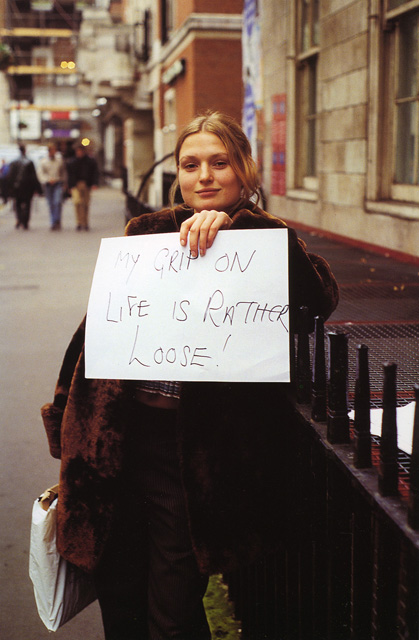 MY GRIP ON
LIFE IS RATHER
LOOSE!